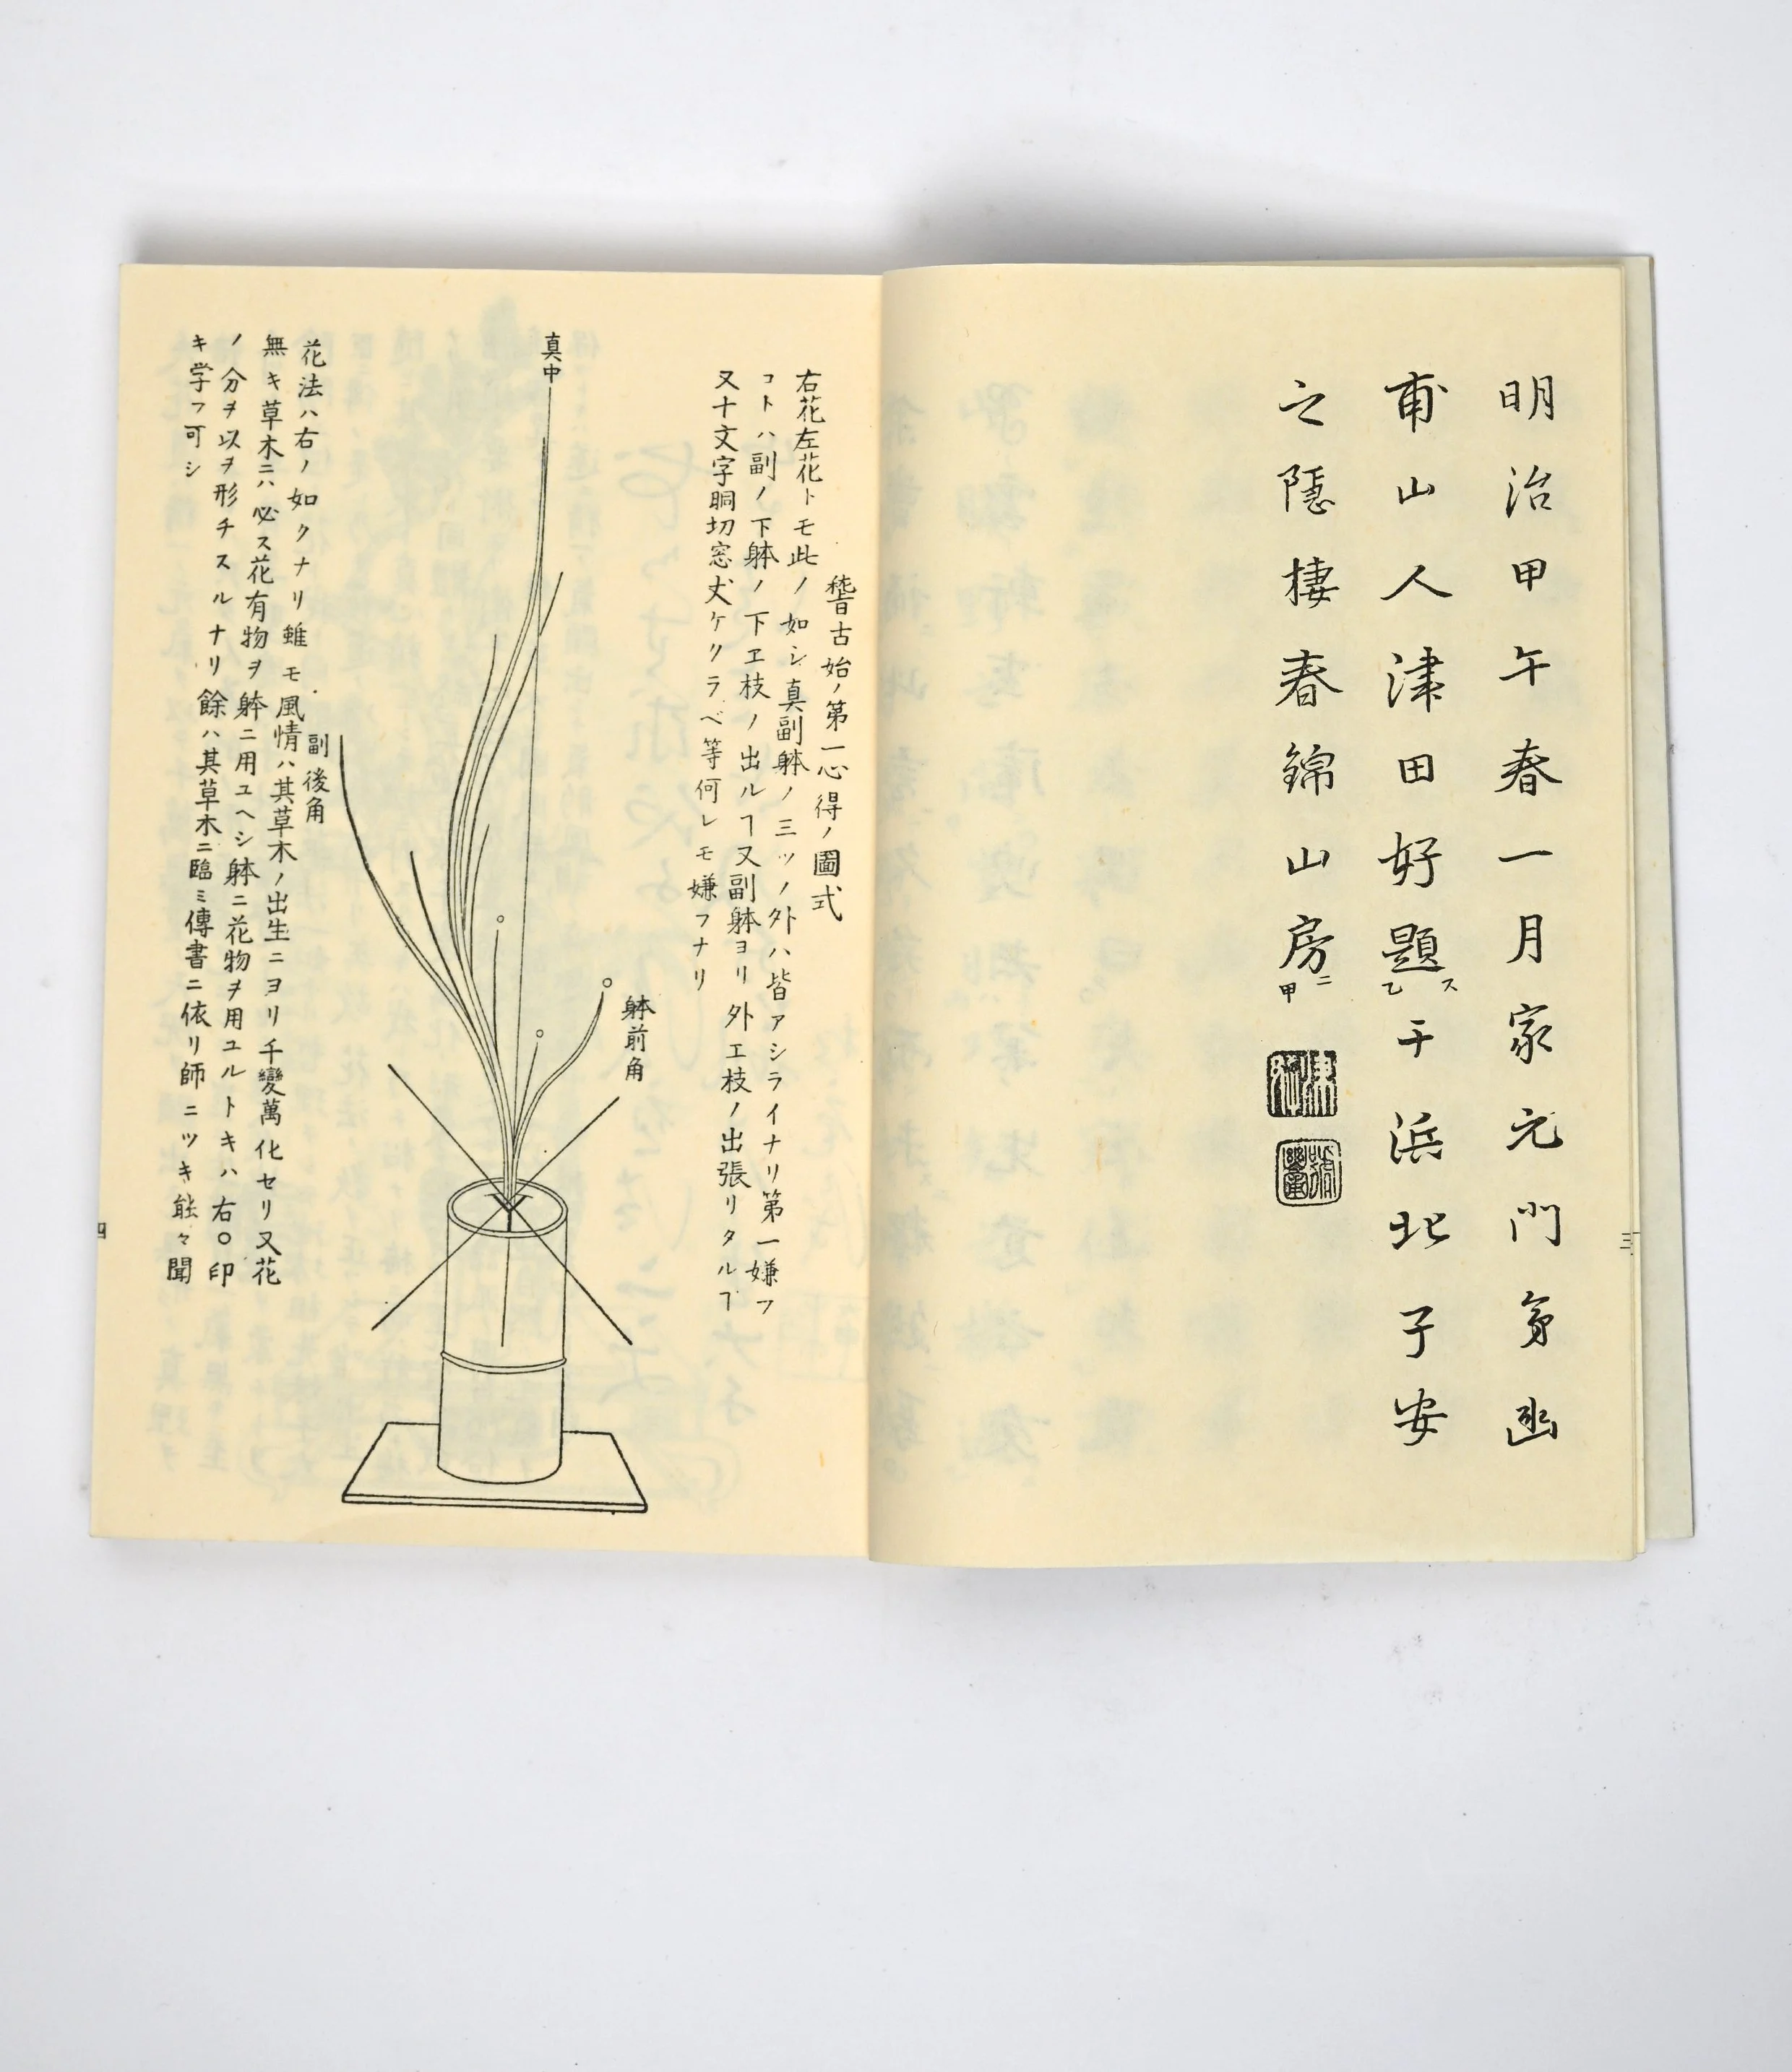 明治甲午春一月家元門弟幽
甫山人津田好題ス乙于浜北子安
之隠棲春錦山房ニ甲
三
稽古始ノ第一心得ノ圖式
右花左花トモ此ノ如シ真副躰ノ三ツノ外ハ皆アシライナリ第一嫌フ
コトハ副ノ下躰ノ下エ枝ノ出ルヿ又副躰ヨリ外エ枝ノ出張リタルヿ
又十文字胴切窓丈ケクラベ等何レモ嫌フナリ
真中
躰前角
副後角
花法ハ右ノ如クナリ雖モ風情ハ其草木ノ出生ニヨリ千變萬化セリ又花
無キ草木ニハ必ス花有物ヲ躰ニ用ユヘシ躰ニ花物ヲ用ユルトキハ右〇印
ノ分ヲ以ヲ形チスルナリ餘ハ其草木ニ臨ミ傳書ニ依リ師ニツキ能々聞
キ学フ可シ
四